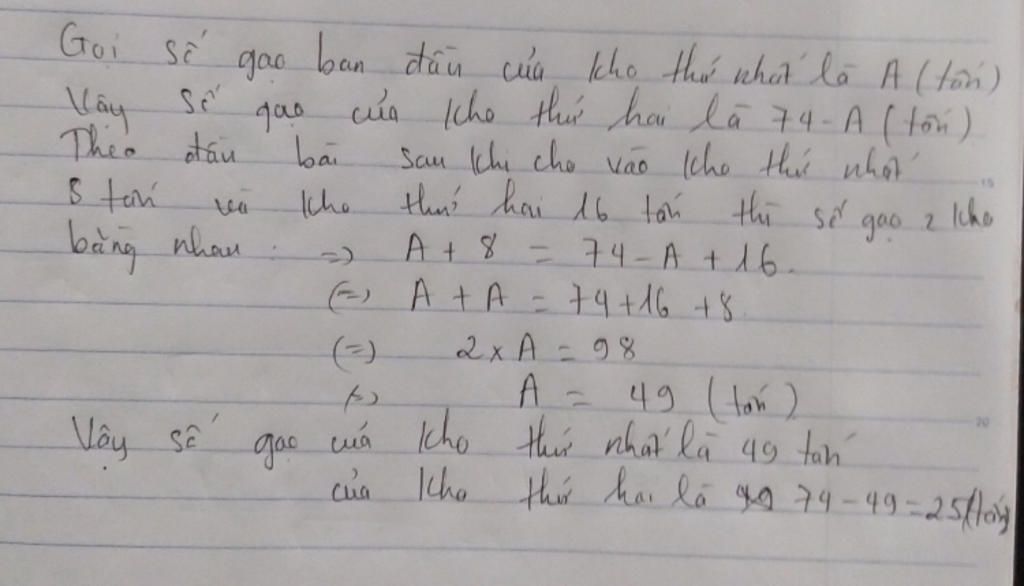 Gọi số gạo ban đầu của kho thứ nhất là A (tấn)
Vậy số gạo của kho thứ hai là 74 - A (tấn)
Theo đầu bài sau khi cho vào kho thứ nhất
8 tấn và kho thứ hai 16 tấn thì số gạo 2 kho
bằng nhau : => A + 8 = 74 - A + 16.
(=) A + A = 74 + 16 + 8
(=) 2 x A = 98
(=) A = 49 (tấn)
Vậy số gạo của kho thứ nhất là 49 tấn
của kho thứ hai là 74 - 49 = 25 (tấn)